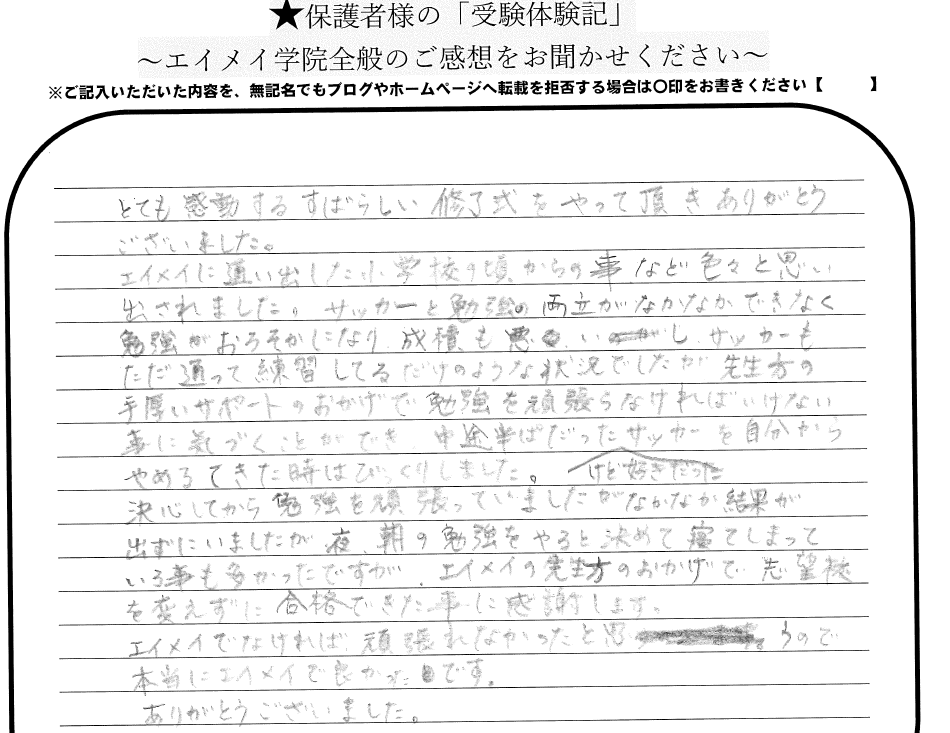 ★保護者様の「受験体験記」
～エイメイ学院全般のご感想をお聞かせください～
※ご記入いただいた内容を、無記名でもブログやホームページへ転載を拒否する場合は〇印をお書きください【　　】
とても感動するすばらしい修了式をやって頂きありがとう
ございました。
エイメイに通い出した小学校の頃からの事など色々と思い
出されました。サッカーと勉強の両立がなかなかできなく
勉強がおろそかになり、成績も悪い、し、サッカーも
ただ通って練習してるだけのような状況でしたが先生方の
手厚いサポートのおかげで勉強を頑張らなければいけない
事に気づくことができ、中途半ぱだったサッカーを自分から
やめるてきた時はびっくりしました。けど好きだった
決心してから勉強を頑張っていましたがなかなか結果が
出ずにいましたが夜、朝の勉強をやると決めて寝てしまって
いる事も多かったですが、エイメイの先生方のおかげで志望校
を変えずに合格できた事に感謝します。
エイメイでなければ、頑張れなかったと思うので
本当にエイメイで良かったです。
ありがとうございました。